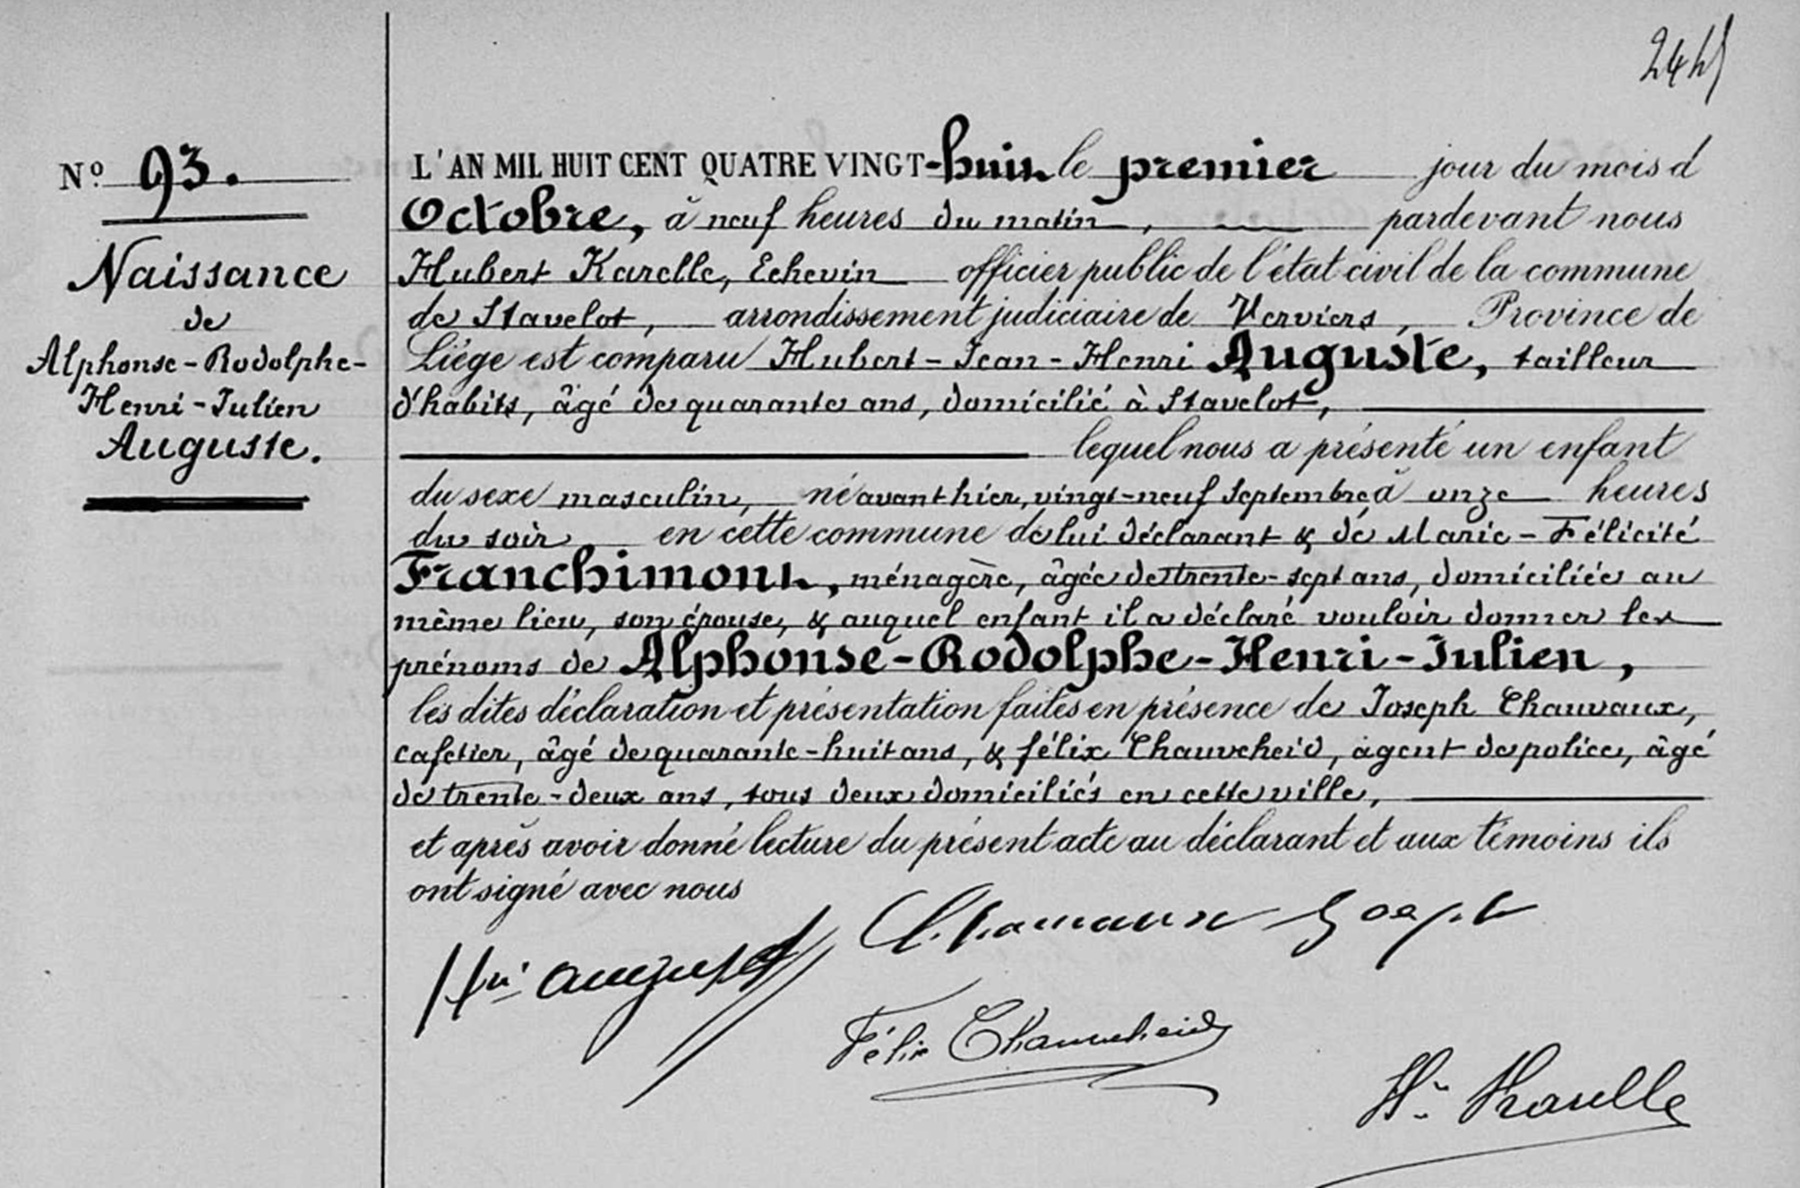 Nº 93.
Naissance
de
Alphonse-Rodolphe-
Henri-Julien
Auguste.
L'AN MIL HUIT CENT QUATRE VINGT-huit le premier jour du mois d
Octobre, à neuf heures du matin, pardevant nous
Hubert Karelle, Echevin officier public de l'état civil de la commune
de Stavelot, arrondissement judiciaire de Verviers, Province de
Liège est comparu Hubert-Jean-Henri Auguste, tailleur
d'habits, âgé de quarante ans, domicilié à Stavelot,
lequel nous a présenté un enfant
du sexe masculin, né avant hier, vingt-neuf Septembre à onze heures
du soir en cette commune de lui déclarant & de Marie-Félicité
Franchimont, ménagère, âgée de trente-sept ans, domiciliée au
même lieu, son épouse, & auquel enfant il a déclaré vouloir donner les
prénoms de Alphonse-Rodolphe-Henri-Julien,
les dites déclaration et présentation faites en présence de Joseph Chauvaux,
cafetier, âgé de quarante-huit ans, & félix Chauveheid, agent de police, âgé
de trente-deux ans, tous deux domiciliés en cette ville,
et après avoir donné lecture du présent acte au déclarant et aux témoins ils
ont signé avec nous
Hri auguste
Joseph
Félix Chauveheid
Ht Karelle